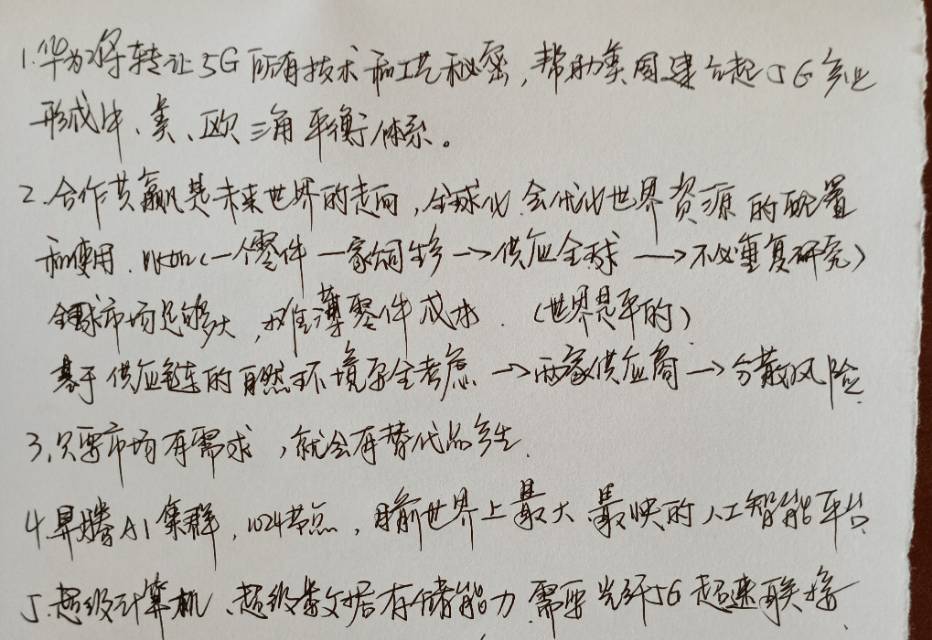 1.华为将转让5G所有技术和工艺秘密,帮助美国建立起5G产业
形成中、美、欧三角平衡体系。
2.合作共赢是未来世界的走向,全球化会优化世界资源的配置
和使用.比如(一个零件一家公司生产→供应全球→不必重复研究)
全球市场足够大,摊薄零件成本.(世界是平的)
基于供应链的自然环境安全考虑→两家供应商→分散风险
3.只要市场有需求,就会有替代品产生.
4.昇腾AI集群,1024节点,目前世界上最大最快的人工智能平台
5.超级计算机、超级数据存储能力需要光纤5G超速联接